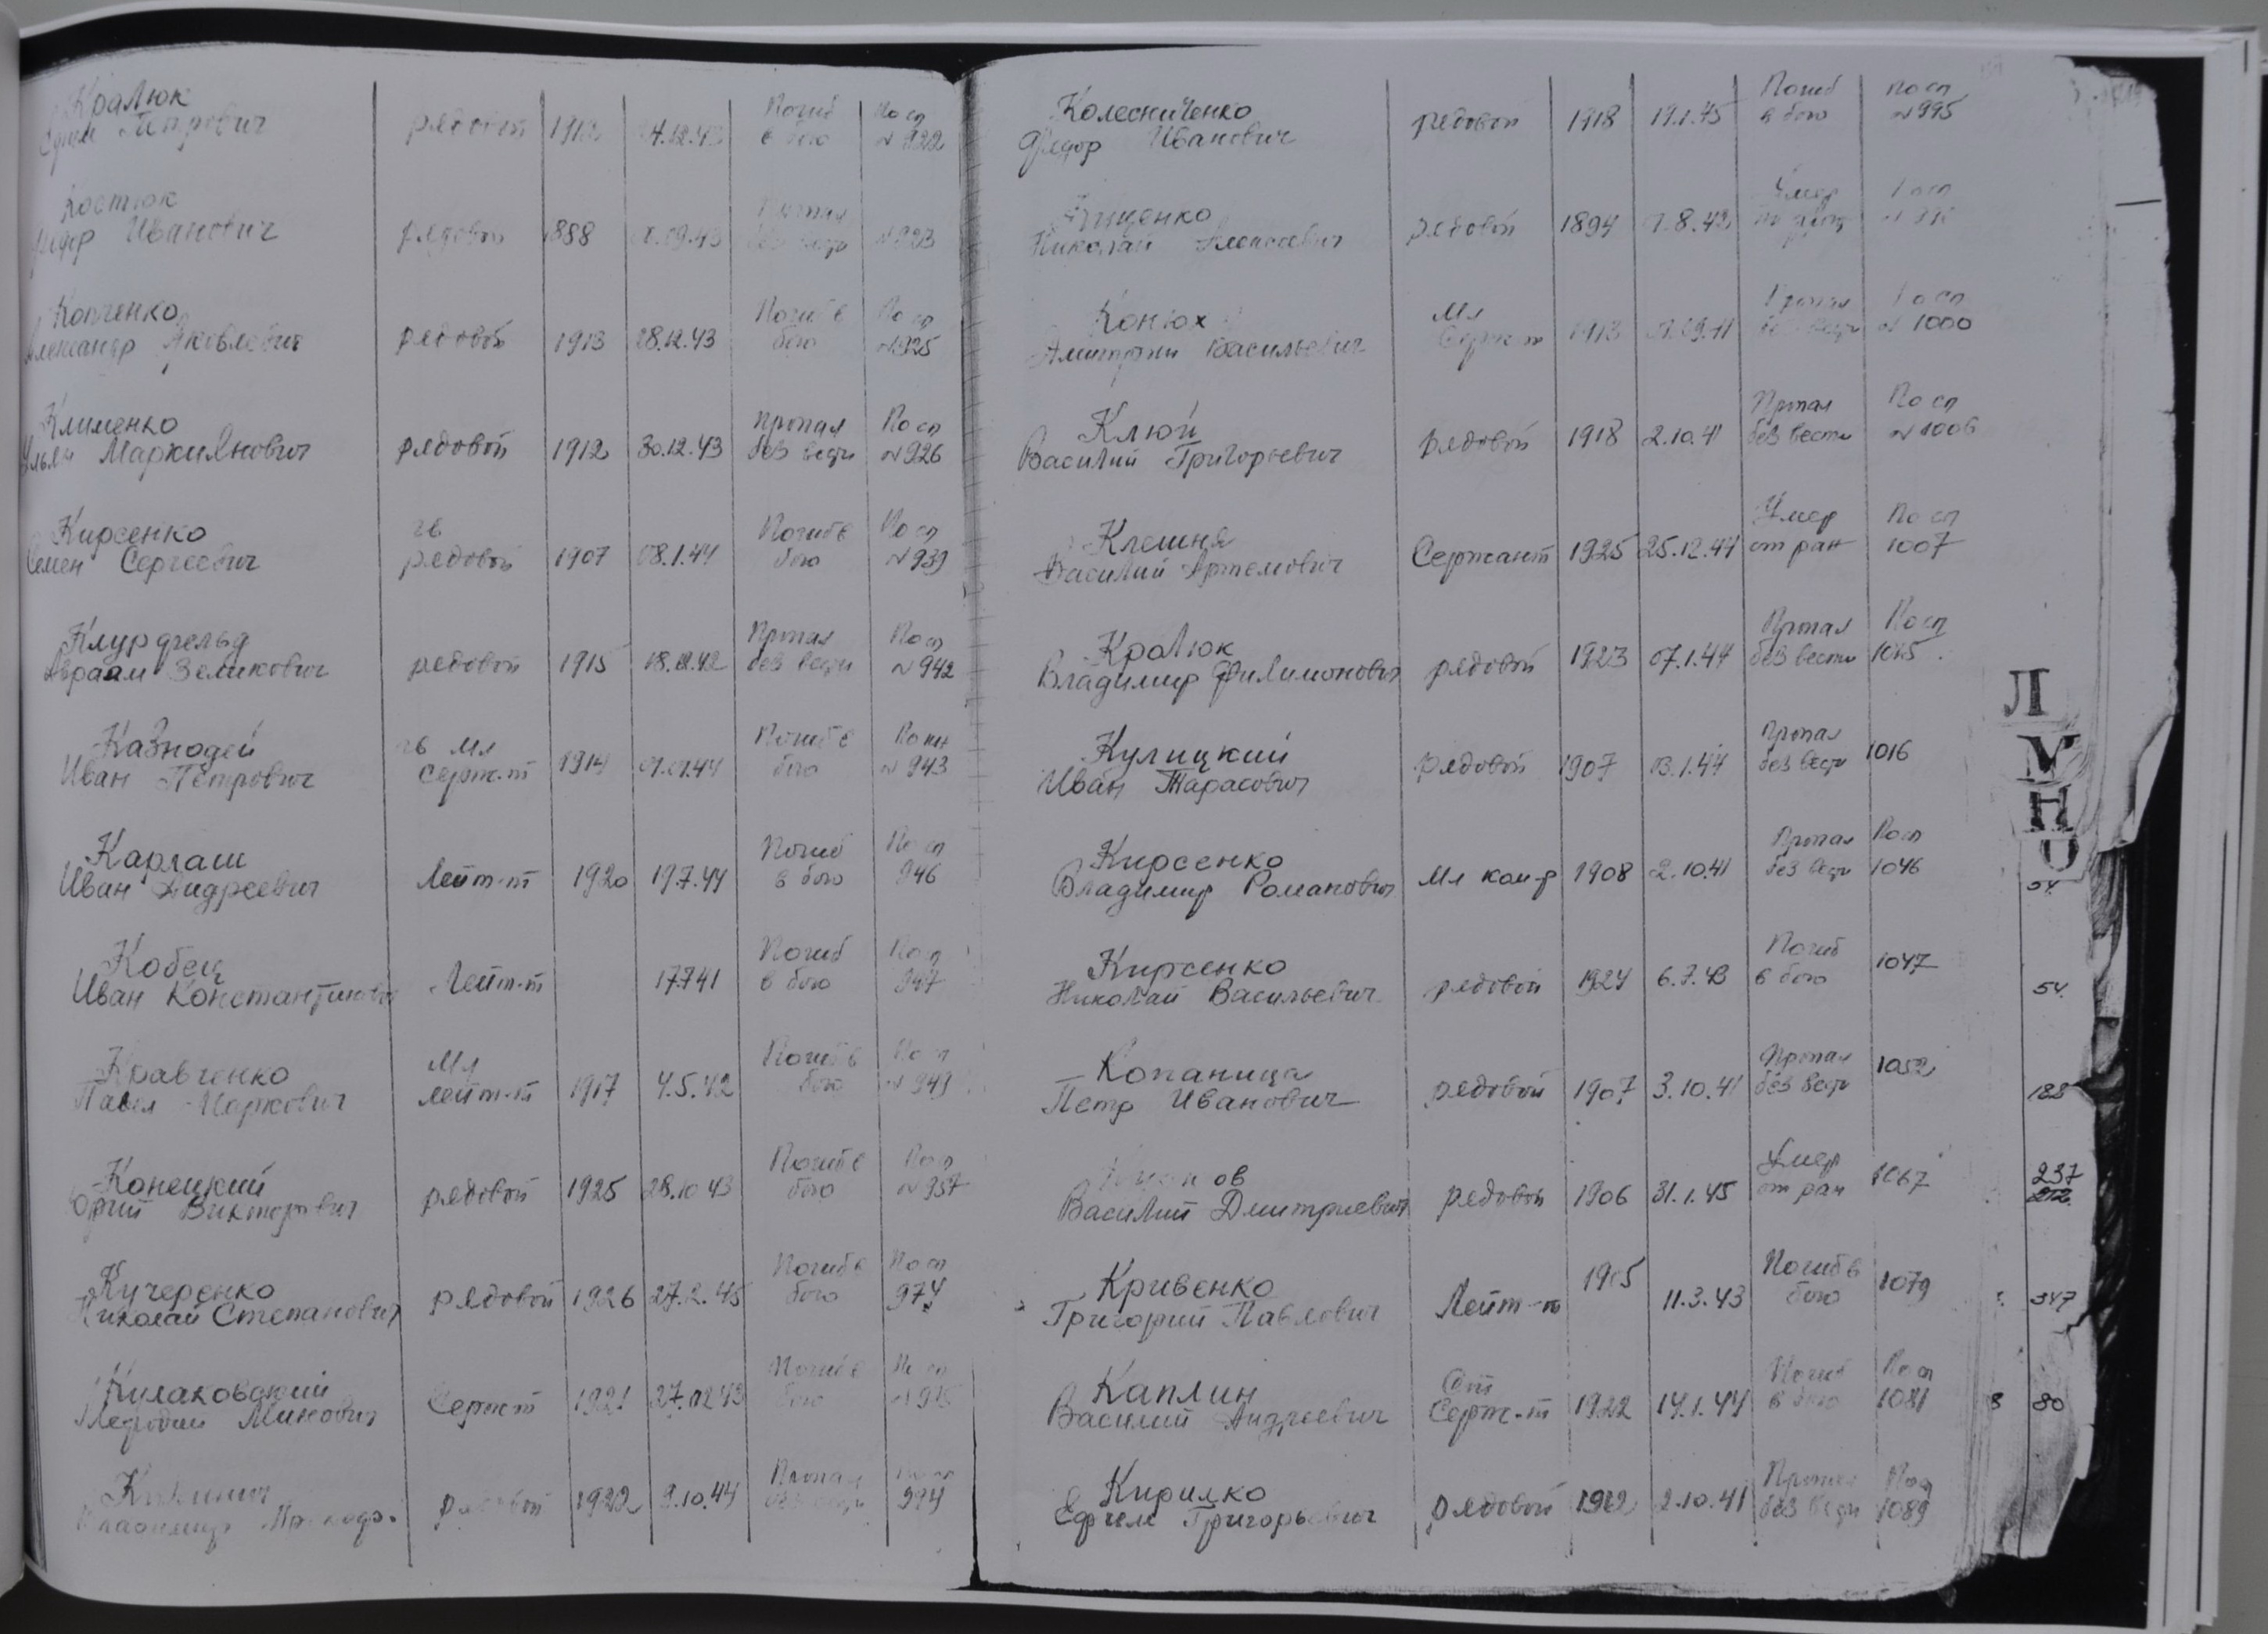 Кралюк
рядовой
Погиб
в бою
По сп
№ 922
Костюк
Иванович
рядовой
1888
№ 923
Копченко
Александр Яковлевич
рядовой
1913
28.12.43
Погиб в
бою
По сп
№ 925
Клименко
Маркиянович
рядовой
1912
30.12.43
Пропал
без вести
По сп
№ 926
Кирсенко
Семен Сергеевич
гв
рядовой
1907
08.1.44
Погиб в
бою
По сп
№ 939
Авраам Зеликович
рядовой
1915
Пропал
без вести
По сп
№ 942
Казнодей
Иван Петрович
гв мл
серж-т
1914
Погиб в
бою
№ 943
Карлаш
Иван Андреевич
Лейт-т
1920
19.7.44
Погиб
в бою
По сп
946
Кобец
Иван Константинович
Лейт-т
17.7.41
Погиб
в бою
По сп
947
Кравченко
Павел Маркович
Мл
лейт-т
1917
4.5.42
Погиб в
бою
По сп
№ 949
Конецкий
Юрий Викторович
рядовой
1925
28.10.43
Погиб в
бою
По сп
№ 957
Кучеренко
Николай Степанович
рядовой
1926
27.2.45
Погиб в
бою
По сп
974
Кулаковский
Мефодий Минович
Серж-т
1921
Погиб в
бою
По сп
Владимир
рядовой
1922
9.10.44
Пропал
без вести
994
Колесниченко
Федор Иванович
рядовой
1918
19.1.45
Погиб
в бою
По сп
№ 995
Николай Алексеевич
рядовой
1894
Умер
По сп
Конюх
Дмитрий Васильевич
Мл
Серж-т
1913
Пропал
без вести
По сп
№ 1000
Клюй
Василий Григорьевич
рядовой
1918
2.10.41
Пропал
без вести
По сп
№ 1006
Клешня
Василий Артемович
Сержант
1925
25.12.44
Умер
от ран
По сп
1007
Кралюк
Владимир Филимонович
рядовой
1923
07.1.44
Пропал
без вести
По сп
Кулицкий
Иван Тарасович
рядовой
1907
13.1.44
Пропал
без вести
1016
Кирсенко
Владимир Романович
Мл ком-р
1908
2.10.41
Пропал
без вести
По сп
1046
Кирсенко
Николай Васильевич
рядовой
1924
6.7.43
Погиб
в бою
1047
Копаница
Петр Иванович
рядовой
1907
3.10.41
Пропал
без вести
1052
Василий Дмитриевич
рядовой
1906
31.1.45
Умер
от ран
1067
Кривенко
Григорий Павлович
Лейт-т
1905
11.3.43
Погиб в
бою
1079
Каплин
Василий Андреевич
Ст
Серж-т
1922
14.1.44
Погиб
в бою
По сп
1081
Кирилко
Ефрем Григорьевич
рядовой
1912
2.10.41
Пропал
без вести
По сп
1089
Л
М
Н
О
54
54
188
237
347
80